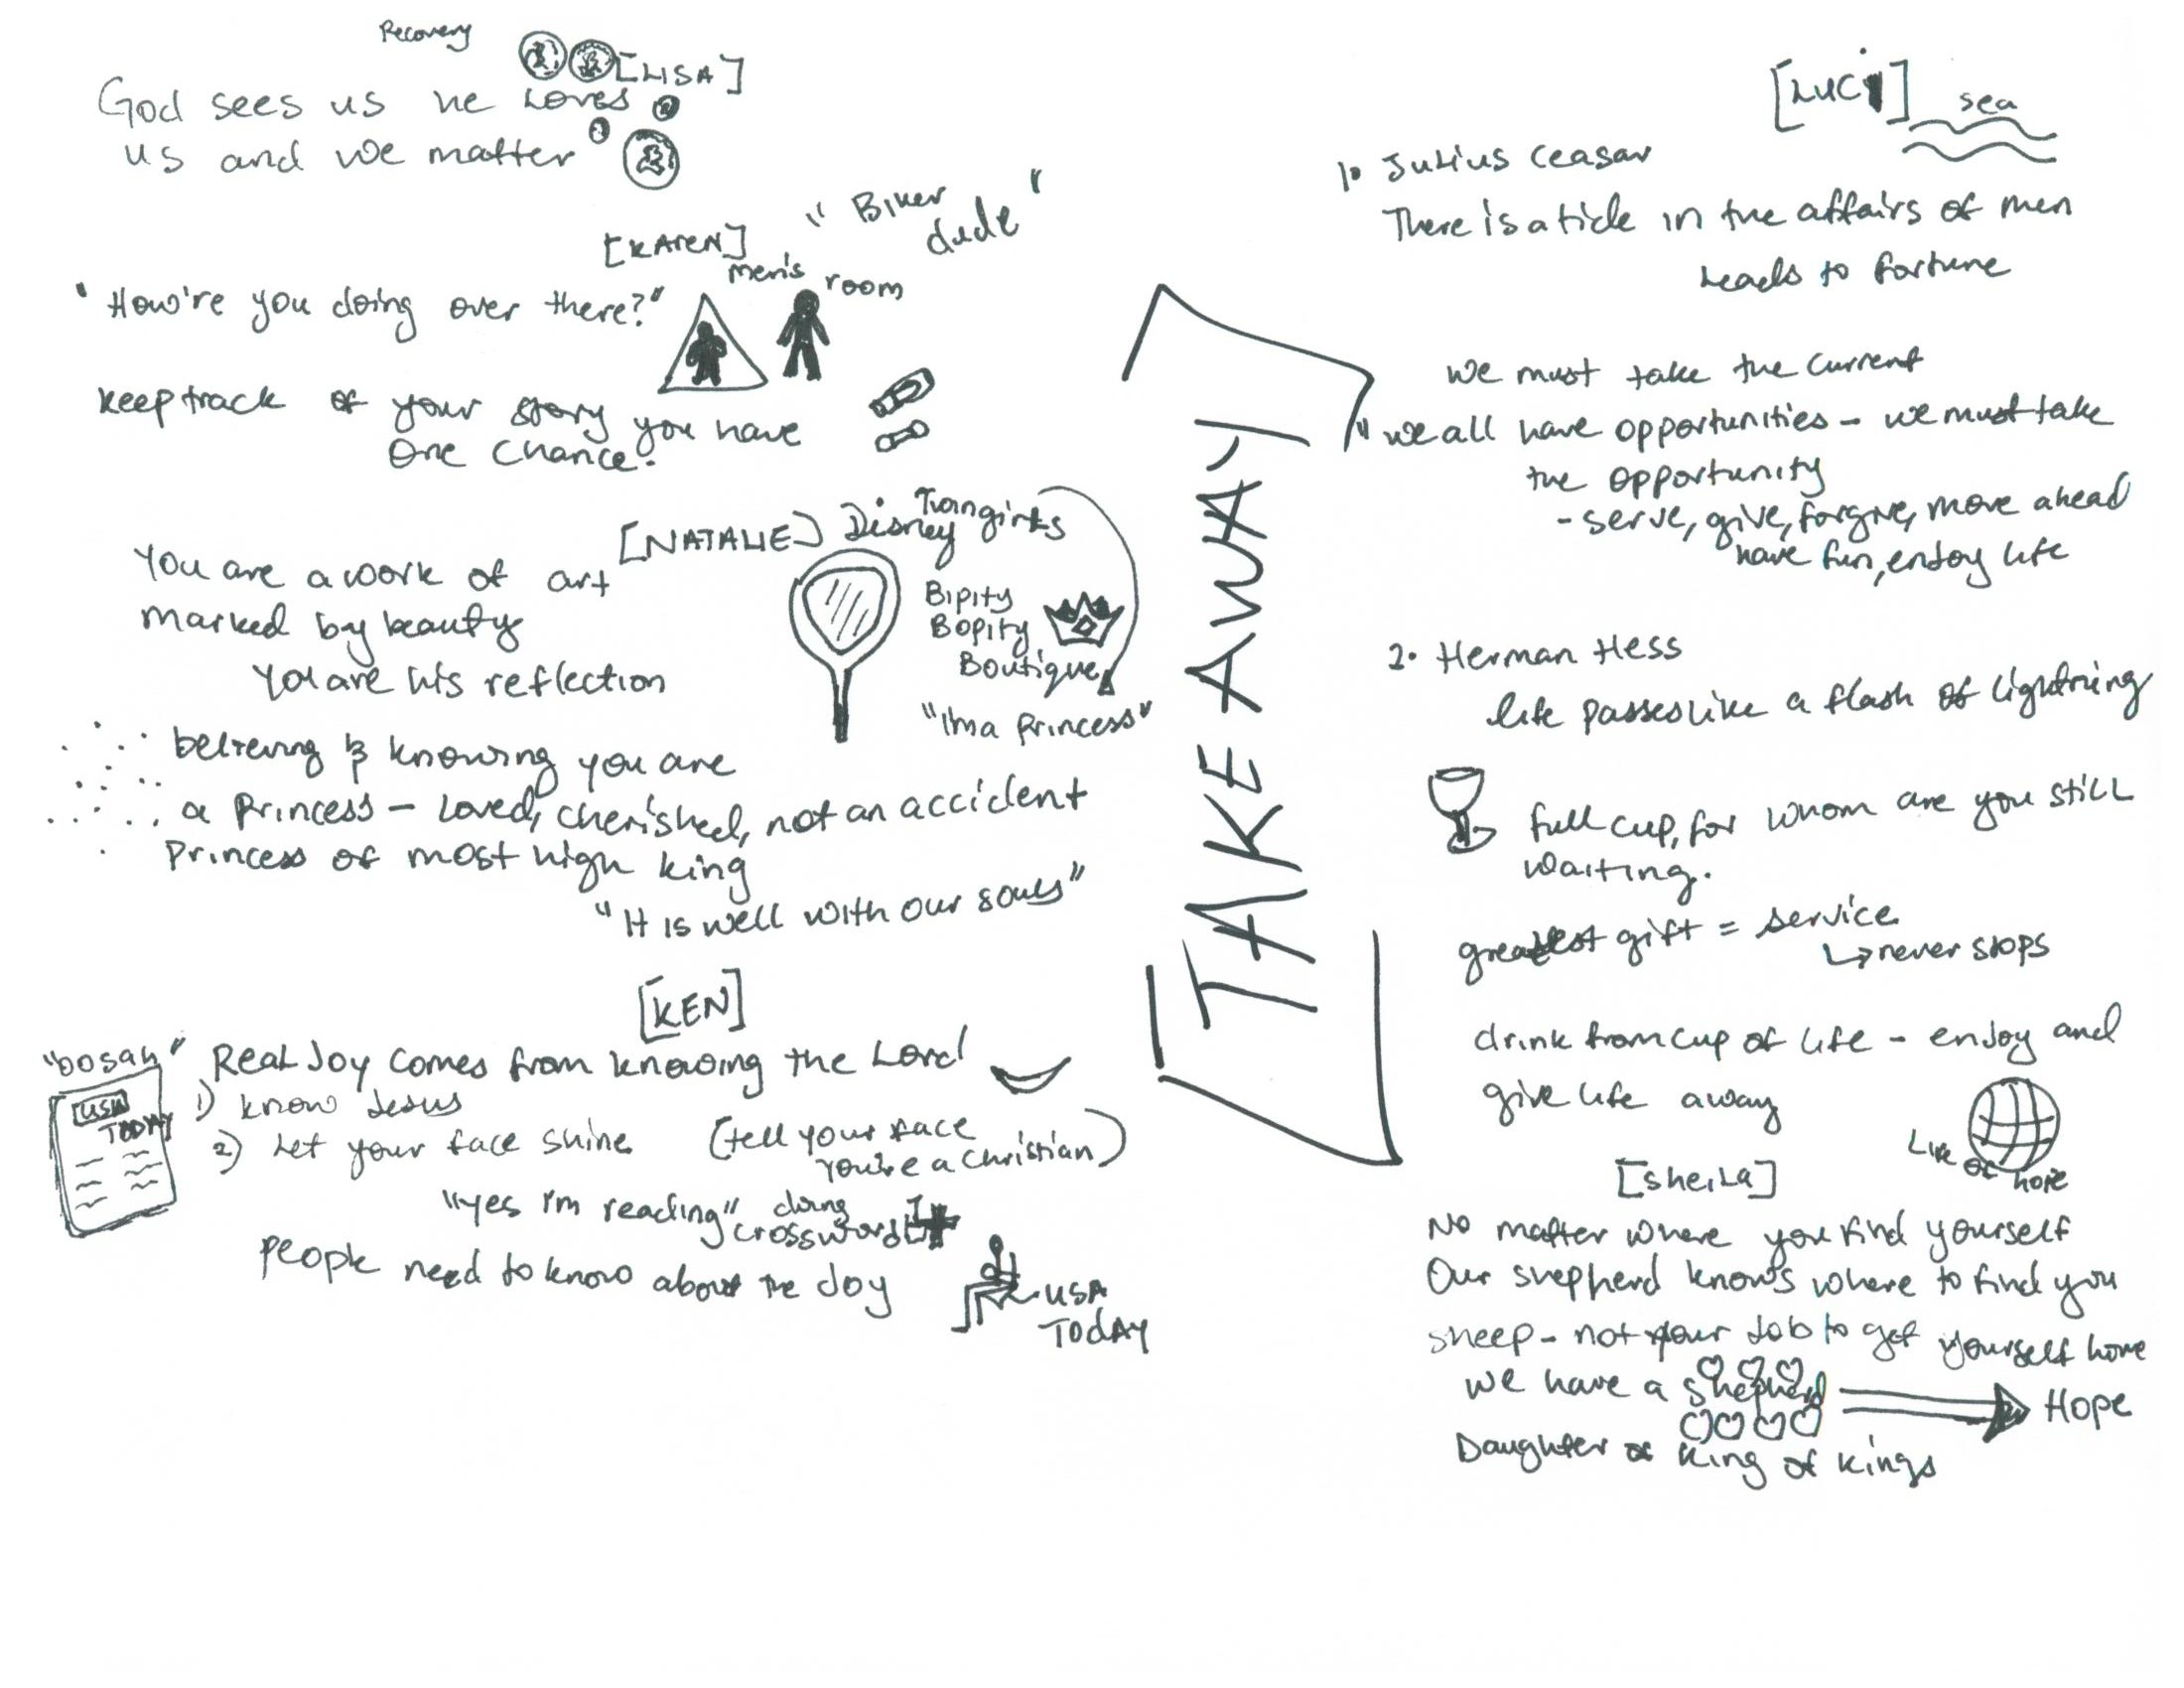 Recovery
[LISA]
God sees us he Loves
us and we matter
[KAREN]
"Biker
dude"
men's room
"How're you doing over there?"
keep track of your story you have
One Chance.
[NATALIE] Disney
Twin girls
You are a work of art
marked by beauty
You are his reflection
Bipity
Bopity
Boutique
"Ima Princess"
believing & knowing you are
a Princess - Loved, cherished, not an accident
Princess of most high king
"It is well with our souls"
[KEN]
"oosah" Real Joy comes from knowing the Lord
USA
TODAY
1) know Jesus
2) Let your face shine (tell your face
you're a Christian)
"yes I'm reading" doing
crossword
People need to know about the Joy
USA
TODAY
TAKE AWAY
[LUCI]
sea
1. Julius Ceasar
There is a tide in the affairs of men
Leads to fortune
we must take the current
"we all have opportunities - we must take
the opportunity
- serve, give, forgive, move ahead
have fun, enjoy life
2. Herman Hess
life passes like a flash of lightning
full cup, for whom are you still
waiting.
greatest gift = service
↳ never stops
drink from cup of life - enjoy and
give life away
of hope
[SheiLa]
No matter where you find yourself
Our shepherd knows where to find you
sheep - not your Job to get yourself home
we have a shepherd
Hope
Daughter of King of Kings